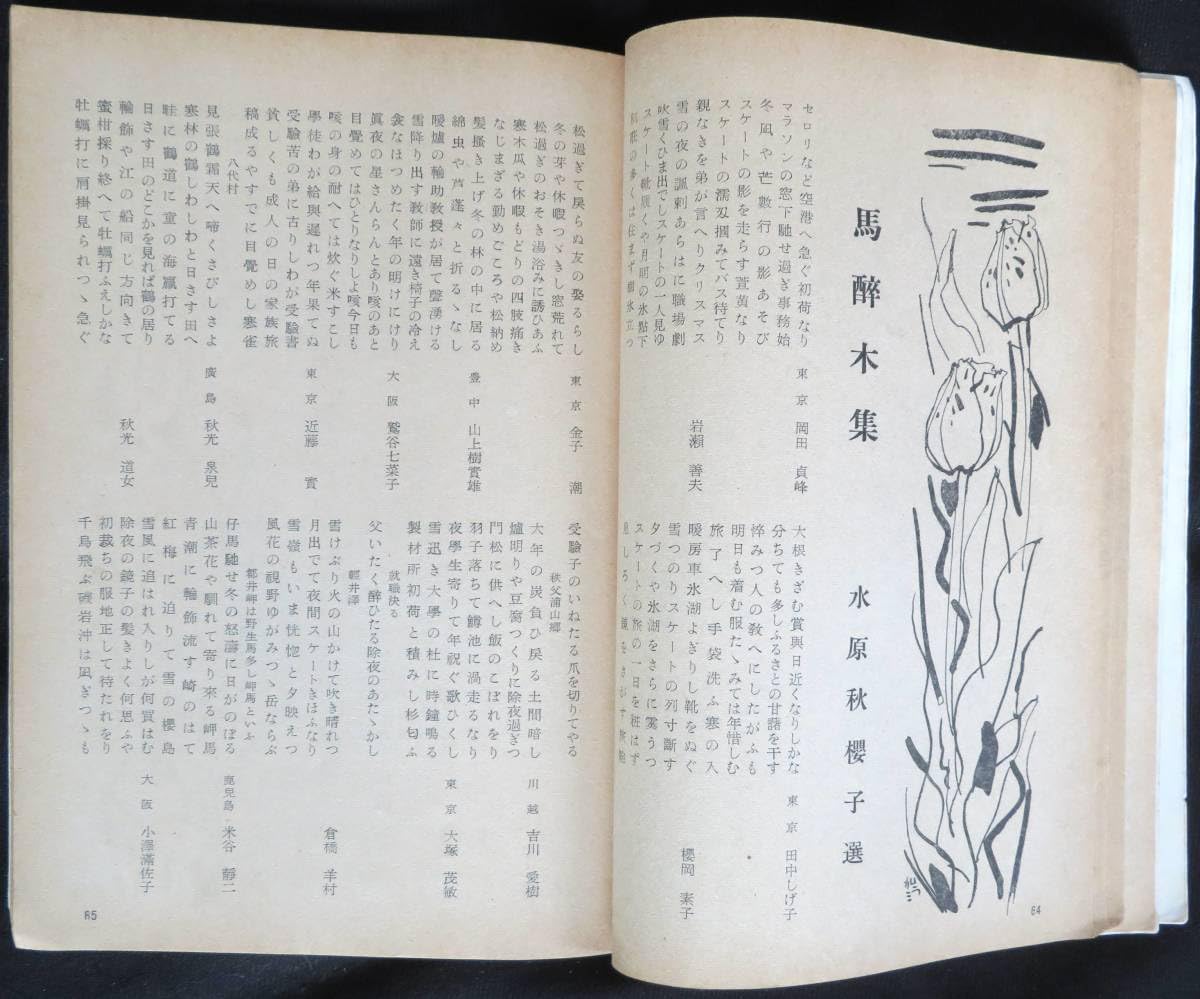 馬醉木集
水原秋櫻子選
セロリなど空港へ急ぐ初荷なり
東京 岡田 貞峰
マラソンの窓下馳せ過ぎ事務始
冬凪や芒數行の影あそび
スケートの影を走らす萱黄なり
スケートの濡刄摑みてバス待てり
親なきを弟が言へりクリスマス
岩瀬 善夫
雪の夜の諷刺あらはに職場劇
吹雪くひま出でしスケートの一人見ゆ
スケート靴履くや月明の氷點下
大根きざむ賞與日近くなりしかな
東京 田中しげ子
分ちても多しふるさとの甘藷を干す
悴みつ人の敎へにしたがふも
明日も着む服たゝみては年惜しむ
旅了へし手袋洗ふ寒の入
暖房車氷湖よぎりし靴をぬぐ
櫻岡 素子
雪つのりスケートの列寸斷す
夕づくや氷湖をさらに雲うつ
スケートの旅の一日を粧はず
64
松過ぎて戻らぬ友の娶るらし
東京 金子 潮
冬の芽や休暇つゞきし窓荒れて
松過ぎのおそき湯浴みに誘ひあふ
寒木瓜や休暇もどりの四肢痛き
なじまざる勤めごころや松納め
髪搔き上げ冬の林の中に居る
豊中 山上樹實雄
綿虫や芦蓬々と折るゝなし
暖爐の輪助教授が居て聲湧ける
雪降り出す教師に遠き椅子の冷え
衾なはつめたく年の明けにけり
大阪 鷲谷七菜子
眞夜の星さんらんとあり咳のあと
目覺めてはひとりなりしよ咳今日も
咳の身の耐へては炊ぐ米すこし
學徒わが給與遲れつ年果てぬ
東京 近藤 實
受驗苦の弟に古りしわが受驗書
貧しくも成人の日の家族旅
稿成るやすでに目覺めし寒雀
八代村
見張鶴霜天へ啼くさびしさよ
廣島 秋光 泉兒
寒林の鶴しわしわと日さす田へ
畦に鶴道に童の海蠃打てる
日さす田のどこかを見れば鶴の居り
輪飾や江の船同じ方向きて
秋光 道女
蜜柑採り終へて牡蠣打ふえしかな
牡蠣打に肩掛見られつゝ急ぐ
受驗子のいねたる爪を切りてやる
秩父浦山鄕
大年の炭負ひ戻る土間暗し
川越 吉川 愛樹
爐明りや豆腐つくりに除夜過ぎつ
門松に供へし飯のこぼれをり
羽子落ちて鱒池に渦走るなり
夜學生寄りて年祝ぐ歌ひくし
東京 大塚 茂敏
雪迅き大學の杜に時鐘鳴る
製材所初荷と積みし杉匂ふ
就職決る
父いたく醉ひたる除夜のあたゝかし
輕井澤
雪けぶり火の山かけて吹き晴れつ
倉橋 羊村
月出でて夜間スケートきほふなり
雪嶺もいま恍惚と夕映えつ
風花の視野ゆがみつゝ岳ならぶ
都井岬は野生馬多し岬馬といふ
仔馬馳せ冬の怒濤に日がのぼる
鹿兒島 米谷 靜二
山茶花や馴れて寄り來る岬馬
青潮に輪飾流す崎のはて
紅梅に迫りて雪の櫻島
雪風に追はれ入りしが何買はむ
大阪 小澤滿佐子
除夜の鏡子の髪きよく何思ふや
初裁ちの服地正して待たれをり
千鳥飛ぶ磯岩沖は凪ぎつゝも
65